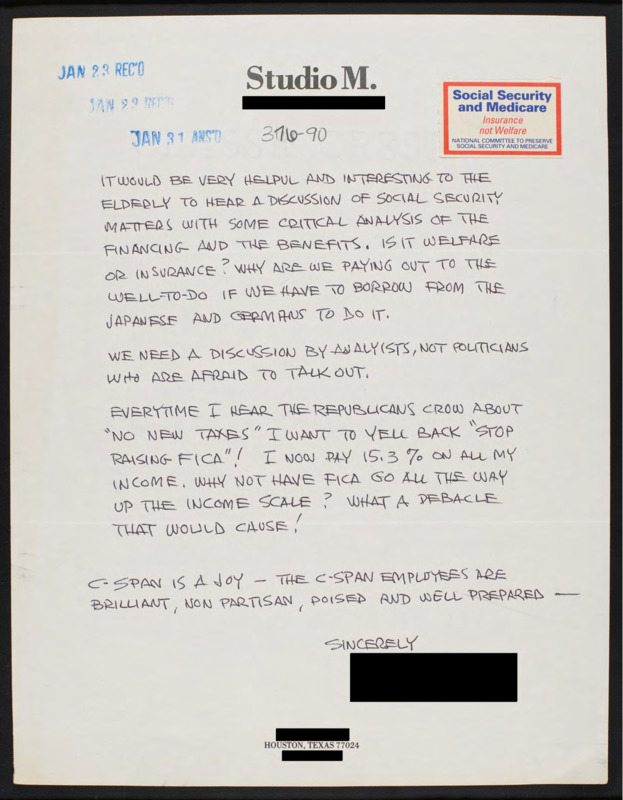 JAN 23 REC'D
JAN 23 REC'D
JAN 31 ANS'D
Studio M.
376-90
Social Security
and Medicare
Insurance
not Welfare
NATIONAL COMMITTEE TO PRESERVE
SOCIAL SECURITY AND MEDICARE
IT WOULD BE VERY HELPUL AND INTERESTING TO THE
ELDERLY TO HEAR A DISCUSSION OF SOCIAL SECURITY
MATTERS WITH SOME CRITICAL ANALYSIS OF THE
FINANCING AND THE BENEFITS. IS IT WELFARE
OR INSURANCE? WHY ARE WE PAYING OUT TO THE
WELL-TO-DO IF WE HAVE TO BORROW FROM THE
JAPANESE AND GERMANS TO DO IT.
WE NEED A DISCUSSION BY ANALYISTS, NOT POLITICIANS
WHO ARE AFRAID TO TALK OUT.
EVERYTIME I HEAR THE REPUBLICANS CROW ABOUT
"NO NEW TAXES" I WANT TO YELL BACK "STOP
RAISING FICA"! I NOW PAY 15.3% ON ALL MY
INCOME. WHY NOT HAVE FICA GO ALL THE WAY
UP THE INCOME SCALE? WHAT A DEBACLE
THAT WOULD CAUSE!
C-SPAN IS A JOY — THE C-SPAN EMPLOYEES ARE
BRILLIANT, NON PARTISAN, POISED AND WELL PREPARED —
SINCERELY
HOUSTON, TEXAS 77024